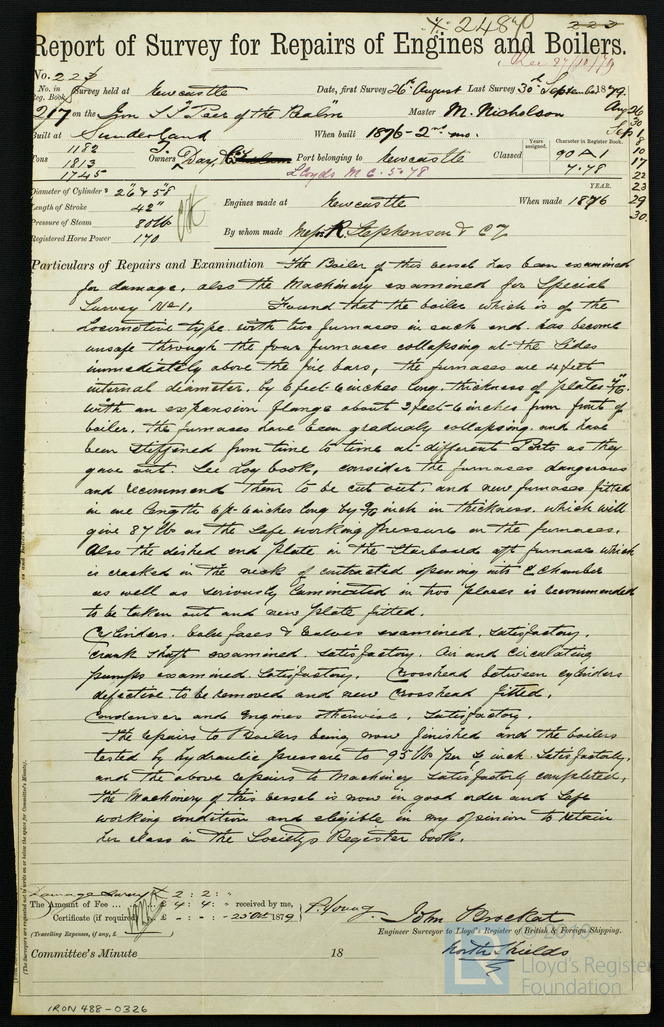 Report of Survey for Repairs of Engines and Boilers.
No. 223
No. in Reg. Book Survey held at Newcastle Date, first Survey 26th August Last Survey 30th September 1879
217 on the Iron S.S. "Peer of the Realm" Master M. Nicholson
Built at Sunderland When built 1876 - 2nd mo.
Tons 1182 1813 1745 Owners T. Day, & Co Port belonging to Newcastle Classed Years assigned. Character in Register Book. 90 A 1 7.78
Lloyds M C. 5.78
Aug 26 30 Sep 1 8 10 17 22 23 29 30
Diameter of Cylinders 26" & 58"
Length of Stroke 42"
Pressure of Steam 80 lb
Registered Horse Power 170
Engines made at Newcastle When made YEAR. 1876
By whom made Messrs R. Stephenson & Co
Particulars of Repairs and Examination The Boiler of this vessel has been examined
for damage, also the Machinery examined for Special
Survey No 1. Found that the boiler which is of the
Locomotive type with two furnaces in each end has become
unsafe through the four furnaces collapsing at the sides
immediately above the fire bars, the furnaces are 4 feet
internal diameter, by 6 feet 6 inches long, thickness of plates 7/16"
with an expansion flange about 3 feet 6 inches from front of
boiler, the furnaces have been gradually collapsing and have
been stiffened from time to time at different Ports as they
gave out. See Log book, consider the furnaces dangerous
and recommend them to be cut out, and new furnaces fitted
in one length 6 ft 6 inches long by inch in thickness, which will
give 87 lb as the safe working pressure on the furnaces.
Also the dished end plate in the Starboard aft furnace which
is cracked in the neck of contracted opening into C Chamber
as well as seriously laminated in two places is recommended
to be taken out and new plate fitted.
Cylinders, valve faces & valves examined, satisfactory,
crank shaft examined, satisfactory. Air and Circulating
pumps examined satisfactory. Crosshead between cylinders
defective to be removed and new crosshead fitted,
Condenser and Engines otherwise, satisfactory,
The repairs to Boilers being now finished and the boilers
tested by hydraulic pressure to 95 lb per sq inch satisfactorily,
and the above repairs to Machinery satisfactorily completed,
The Machinery of this vessel is now in good order and safe
working condition and eligible in my opinion to retain
her class in the Society's Register book.
Damage Survey £ 2 : 2 : "
The Amount of Fee ... £ 4 : 4 : " received by me,
Certificate (if required) £ - : - : - 25 Oct 1879
(Travelling Expenses, if any, £ )
P. Young. John Brockat
Engineer Surveyor to Lloyd's Register of British & Foreign Shipping.
North Shields
Committee's Minute 18
LR
Lloyd's Register
Foundation
IRON 488-0326